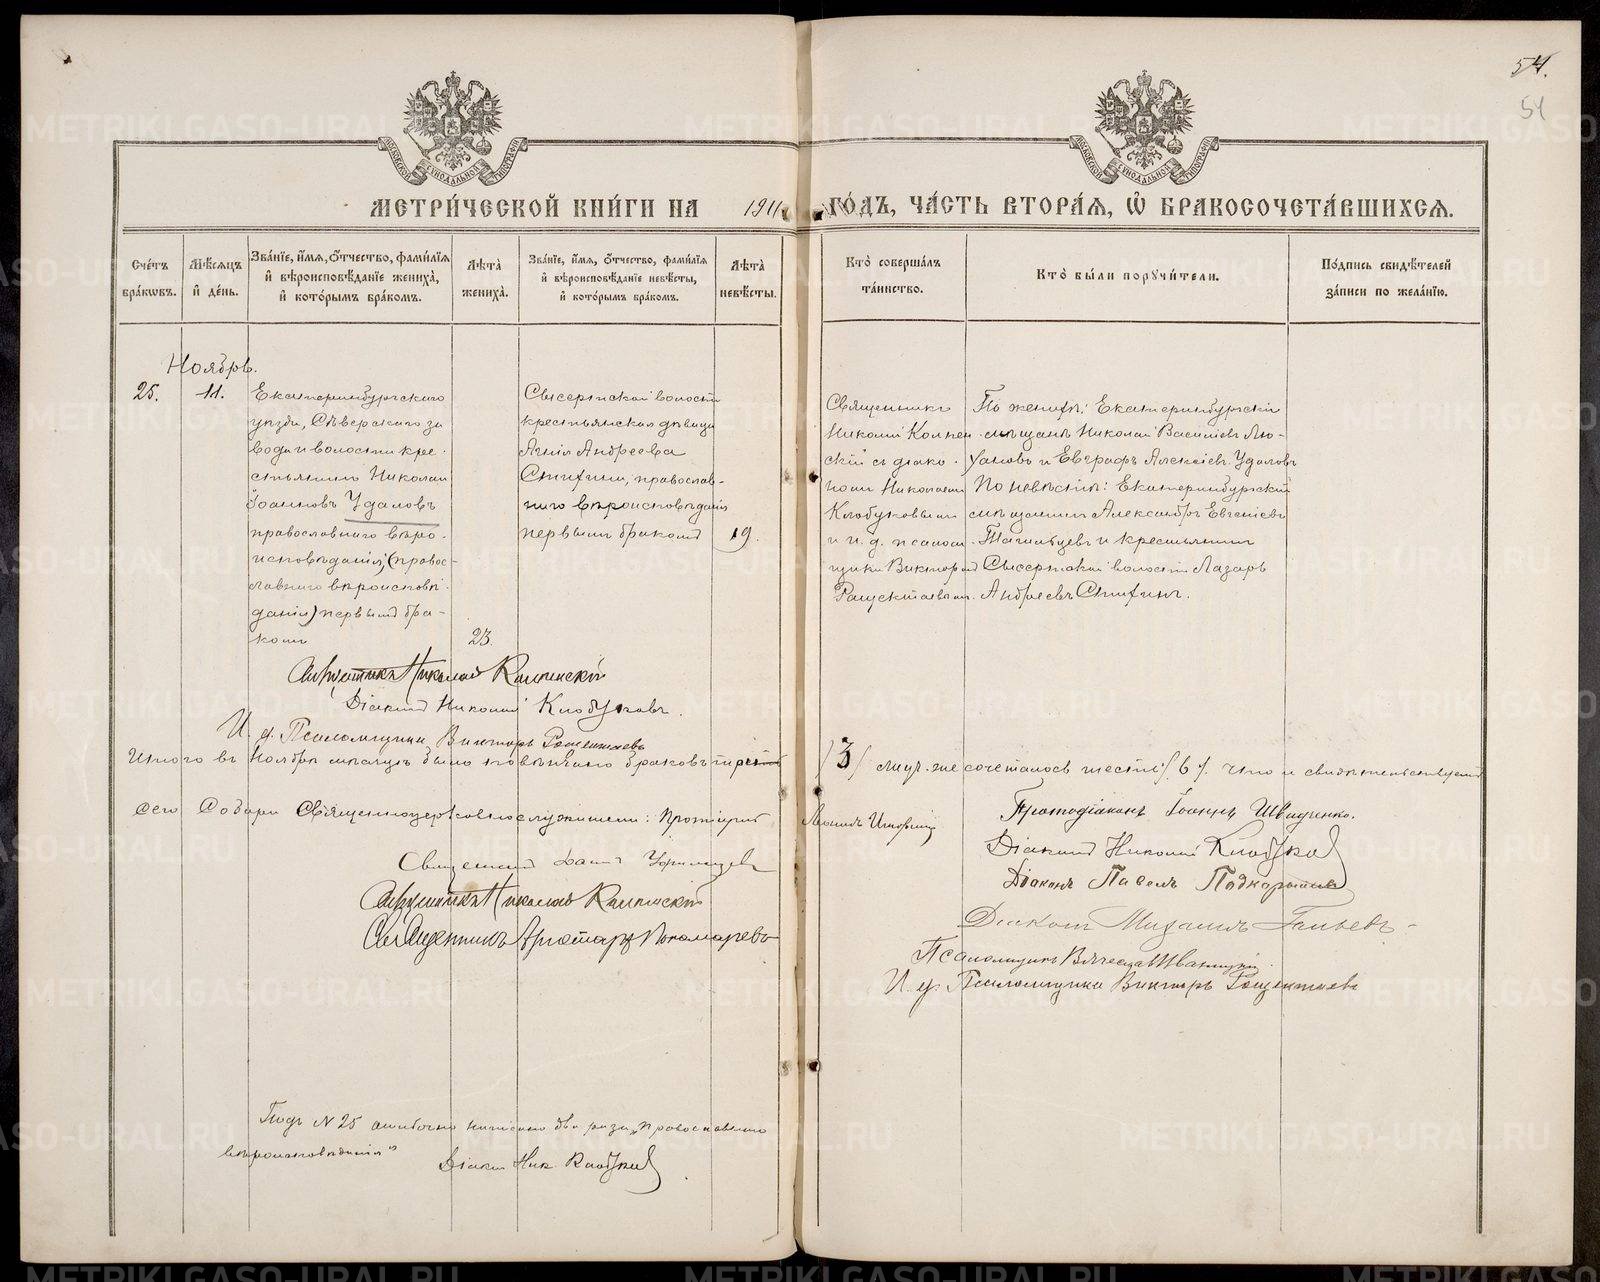 54.
54
МОСКОВСКОЙ СѴНОДАЛЬНОЙ ТИПОГРАФІИ
МОСКОВСКОЙ СѴНОДАЛЬНОЙ ТИПОГРАФІИ
МЕТРИ́ЧЕСКОЙ КНИ́ГИ НА 1911 ГО́ДЪ, ЧА́СТЬ ВТОРА́Я, Ѡ҆ БРАКОСОЧЕТА́ВШИХСЯ.
Сче́тъ бра́кѡвъ.
Мѣ́сяцъ и҆ де́нь.
Зва́нїе, и҆́мя, ѻ҆́тчество, фами́лїя и҆ вѣроисповѣ́данїе жениха̀, и҆ кото́рымъ бра́комъ.
Лѣта̀ жениха̀.
Зва́нїе, и҆́мя, ѻ҆́тчество, фами́лїя и҆ вѣроисповѣ́данїе невѣ́сты, и҆ кото́рымъ бра́комъ.
Лѣта̀ невѣ́сты.
Кто̀ соверша́лъ та́инство.
Кто̀ бы́ли порꙋчи́тели.
По́дпись свидѣ́телей за́писи по жела́нїю.
Ноябрь.
25.
11.
Екатеринбургскаго
уѣзда, Сѣверскаго за
вода и волости кре-
стьянинъ Николай
Іоанновъ Удаловъ
православнаго вѣро-
исповѣданія, (правос-
лавнаго вѣроисповѣ-
данія) первымъ бра-
комъ
23.
Сысертской волости
крестьянская дѣвица
Агнія Андреева
Спирина, православ-
наго вѣроисповѣданія
первымъ бракомъ
19.
Священникъ
Николай
скій съ діако-
номъ Николаемъ
Клобуковымъ
и и. д. псалом-
щика Викторомъ
По женихѣ: Екатеринбургскій
мѣщанъ Николай Василіевъ
и Евграфъ Алексіевъ Удаловъ
По невѣстѣ: Екатеринбургскій
мѣщанинъ Александръ Евгеніевъ
и крестьянинъ
Сысертской волости Лазарь
Андреевъ Спиринъ.
Священникъ Николай
Діаконъ Николай Клобуковъ.
И. д. Псаломщика Викторъ
Итого въ Ноябрѣ мѣсяцѣ было повѣнчано браковъ три /3/ лицъ-же сочеталось шесть /6/. Что и свидѣтельствуемъ
сего Собора Священноцерковнослужители: Протоіерей
Священникъ
Священникъ Николай
Священникъ Аристархъ Пономаревъ
Протодіаконъ Іоаннъ Швидченко.
Діаконъ Николай Клобуковъ
Діаконъ Павелъ
Діаконъ Михаилъ
Псаломщикъ Вячеславъ
И. д. Псаломщика Викторъ
Подъ №25 ошибочно написано два раза „православнаго
вѣроисповѣданія"
Діаконъ Ник. Клобуковъ
METRIKI.GASO-URAL.RU